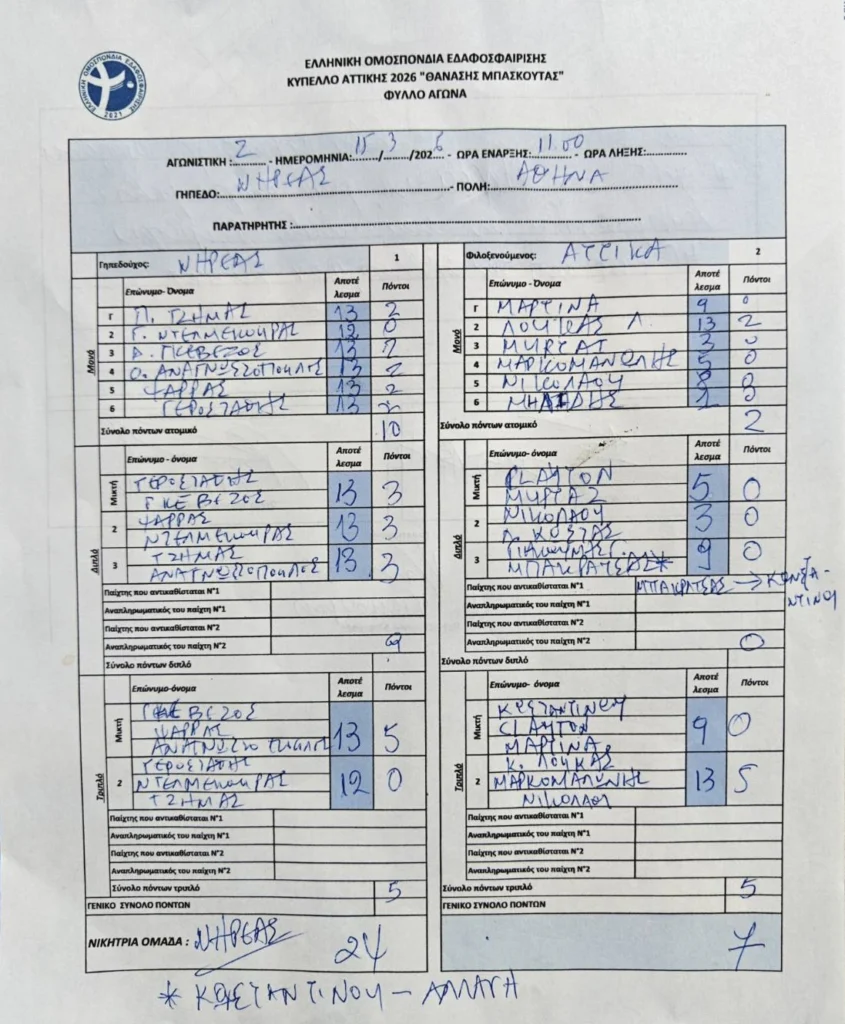 ΕΛΛΗΝΙΚΗ ΟΜΟΣΠΟΝΔΙΑ ΕΔΑΦΟΣΦΑΙΡΙΣΗΣ
ΚΥΠΕΛΛΟ ΑΤΤΙΚΗΣ 2026 "ΘΑΝΑΣΗΣ ΜΠΑΣΚΟΥΤΑΣ"
ΦΥΛΛΟ ΑΓΩΝΑ
ΕΛΛΗΝΙΚΗ ΟΜΟΣΠΟΝΔΙΑ ΕΔΑΦΟΣΦΑΙΡΙΣΗΣ 2021
ΑΓΩΝΙΣΤΙΚΗ : 2 - ΗΜΕΡΟΜΗΝΙΑ: 15/3/2026 - ΩΡΑ ΕΝΑΡΞΗΣ: 11.00 - ΩΡΑ ΛΗΞΗΣ:
ΓΗΠΕΔΟ: ΝΗΡΕΑΣ - ΠΟΛΗ: ΑΘΗΝΑ
ΠΑΡΑΤΗΡΗΤΗΣ :
Γηπεδούχος: ΝΗΡΕΑΣ 1
Μονό
Επώνυμο- Όνομα Αποτέλεσμα Πόντοι
Γ Π. ΤΖΗΜΑΣ 13 2
2 Γ. ΝΤΕΛΜΕΚΟΥΡΑΣ 12 0
3 Δ. ΓΚΕΒΕΖΟΣ 13 2
4 Ο. ΑΝΑΓΝΩΣΤΟΠΟΥΛΟΣ 13 2
5 ΨΑΡΡΑΣ 13 2
6 ΓΕΡΟΣΤΑΘΗΣ 13 2
Σύνολο πόντων ατομικό 10
Διπλό
Επώνυμο - όνομα Αποτέλεσμα Πόντοι
Μικτή ΓΕΡΟΣΤΑΘΗΣ
ΓΚΕΒΕΖΟΣ 13 3
2 ΨΑΡΡΑΣ
ΝΤΕΛΜΕΚΟΥΡΑΣ 13 3
3 ΤΖΗΜΑΣ
ΑΝΑΓΝΩΣΤΟΠΟΥΛΟΣ 13 3
Παίχτης που αντικαθίσταται Ν°1
Αναπληρωματικός του παίχτη Ν°1
Παίχτης που αντικαθίσταται Ν°2
Αναπληρωματικός του παίχτη Ν°2 9
Σύνολο πόντων διπλό
Τριπλό
Επώνυμο-όνομα Αποτέλεσμα Πόντοι
Μικτή ΓΚΕΒΕΖΟΣ
ΨΑΡΡΑΣ
ΑΝΑΓΝΩΣΤΟΠΟΥΛΟΣ 13 5
2 ΓΕΡΟΣΤΑΘΗΣ
ΝΤΕΛΜΕΚΟΥΡΑΣ
ΤΖΗΜΑΣ 12 0
Παίχτης που αντικαθίσταται Ν°1
Αναπληρωματικός του παίχτη Ν°1
Παίχτης που αντικαθίσταται Ν°2
Αναπληρωματικός του παίχτη Ν°2
Σύνολο πόντων τριπλό 5
ΓΕΝΙΚΟ ΣΥΝΟΛΟ ΠΟΝΤΩΝ
ΝΙΚΗΤΡΙΑ ΟΜΑΔΑ : ΝΗΡΕΑΣ 24
Φιλοξενούμενος: ΑΤΤΙΚΑ 2
Μονό
Επώνυμο - Όνομα Αποτέλεσμα Πόντοι
Γ ΜΑΡΤΙΝΑ 9 0
2 ΛΟΥΚΑΣ Λ. 13 2
3 ΜΥΡΤΑΤ 3 0
4 ΜΑΡΚΟΜΑΝΩΛΗΣ 5 0
5 ΝΙΚΟΛΑΟΥ 8 0
6 0
Σύνολο πόντων ατομικό 2
Διπλό
Επώνυμο- όνομα Αποτέλεσμα Πόντοι
Μικτή CLAYTON
ΜΥΡΤΑΣ 5 0
2 ΝΙΚΟΛΑΟΥ
ΚΩΣΤΑΣ 3 0
3
ΜΠΑΚΡΑΤΣΑΣ* 9 0
Παίχτης που αντικαθίσταται Ν°1 ΜΠΑΚΡΑΤΣΑΣ → ΚΩΝΣΤΑΝΤΙΝΟΥ
Αναπληρωματικός του παίχτη Ν°1
Παίχτης που αντικαθίσταται Ν°2
Αναπληρωματικός του παίχτη Ν°2 0
Σύνολο πόντων διπλό
Τριπλό
Επώνυμο- όνομα Αποτέλεσμα Πόντοι
Μικτή ΚΩΣΤΑΝΤΙΝΟΥ
CLAYTON
ΜΑΡΤΙΝΑ 9 0
2 Κ. ΛΟΥΚΑΣ
ΜΑΡΚΟΜΑΛΩΝΗΣ
ΝΙΚΟΛΑΟΥ 13 5
Παίχτης που αντικαθίσταται Ν°1
Αναπληρωματικός του παίχτη Ν°1
Παίχτης που αντικαθίσταται Ν°2
Αναπληρωματικός του παίχτη Ν°2
Σύνολο πόντων τριπλό 5
ΓΕΝΙΚΟ ΣΥΝΟΛΟ ΠΟΝΤΩΝ
7
* ΚΩΣΤΑΝΤΙΝΟΥ – ΑΛΛΑΓΗ